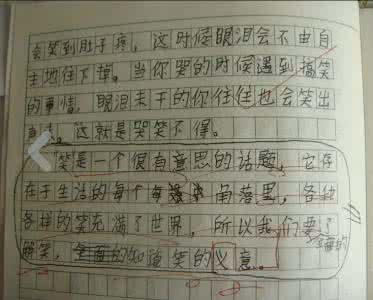 会笑到肚子疼，这时候眼泪会不由自
主地往下掉。当你哭的时候遇到搞笑
的事情，眼泪未干的你往往也会笑出
声来。这就是哭笑不得。
笑是一个很有意思的话题，它存
在于生活的每个角落里，各种
各样的笑充满了世界，所以我们要了
解笑，全面的知道笑的意义。